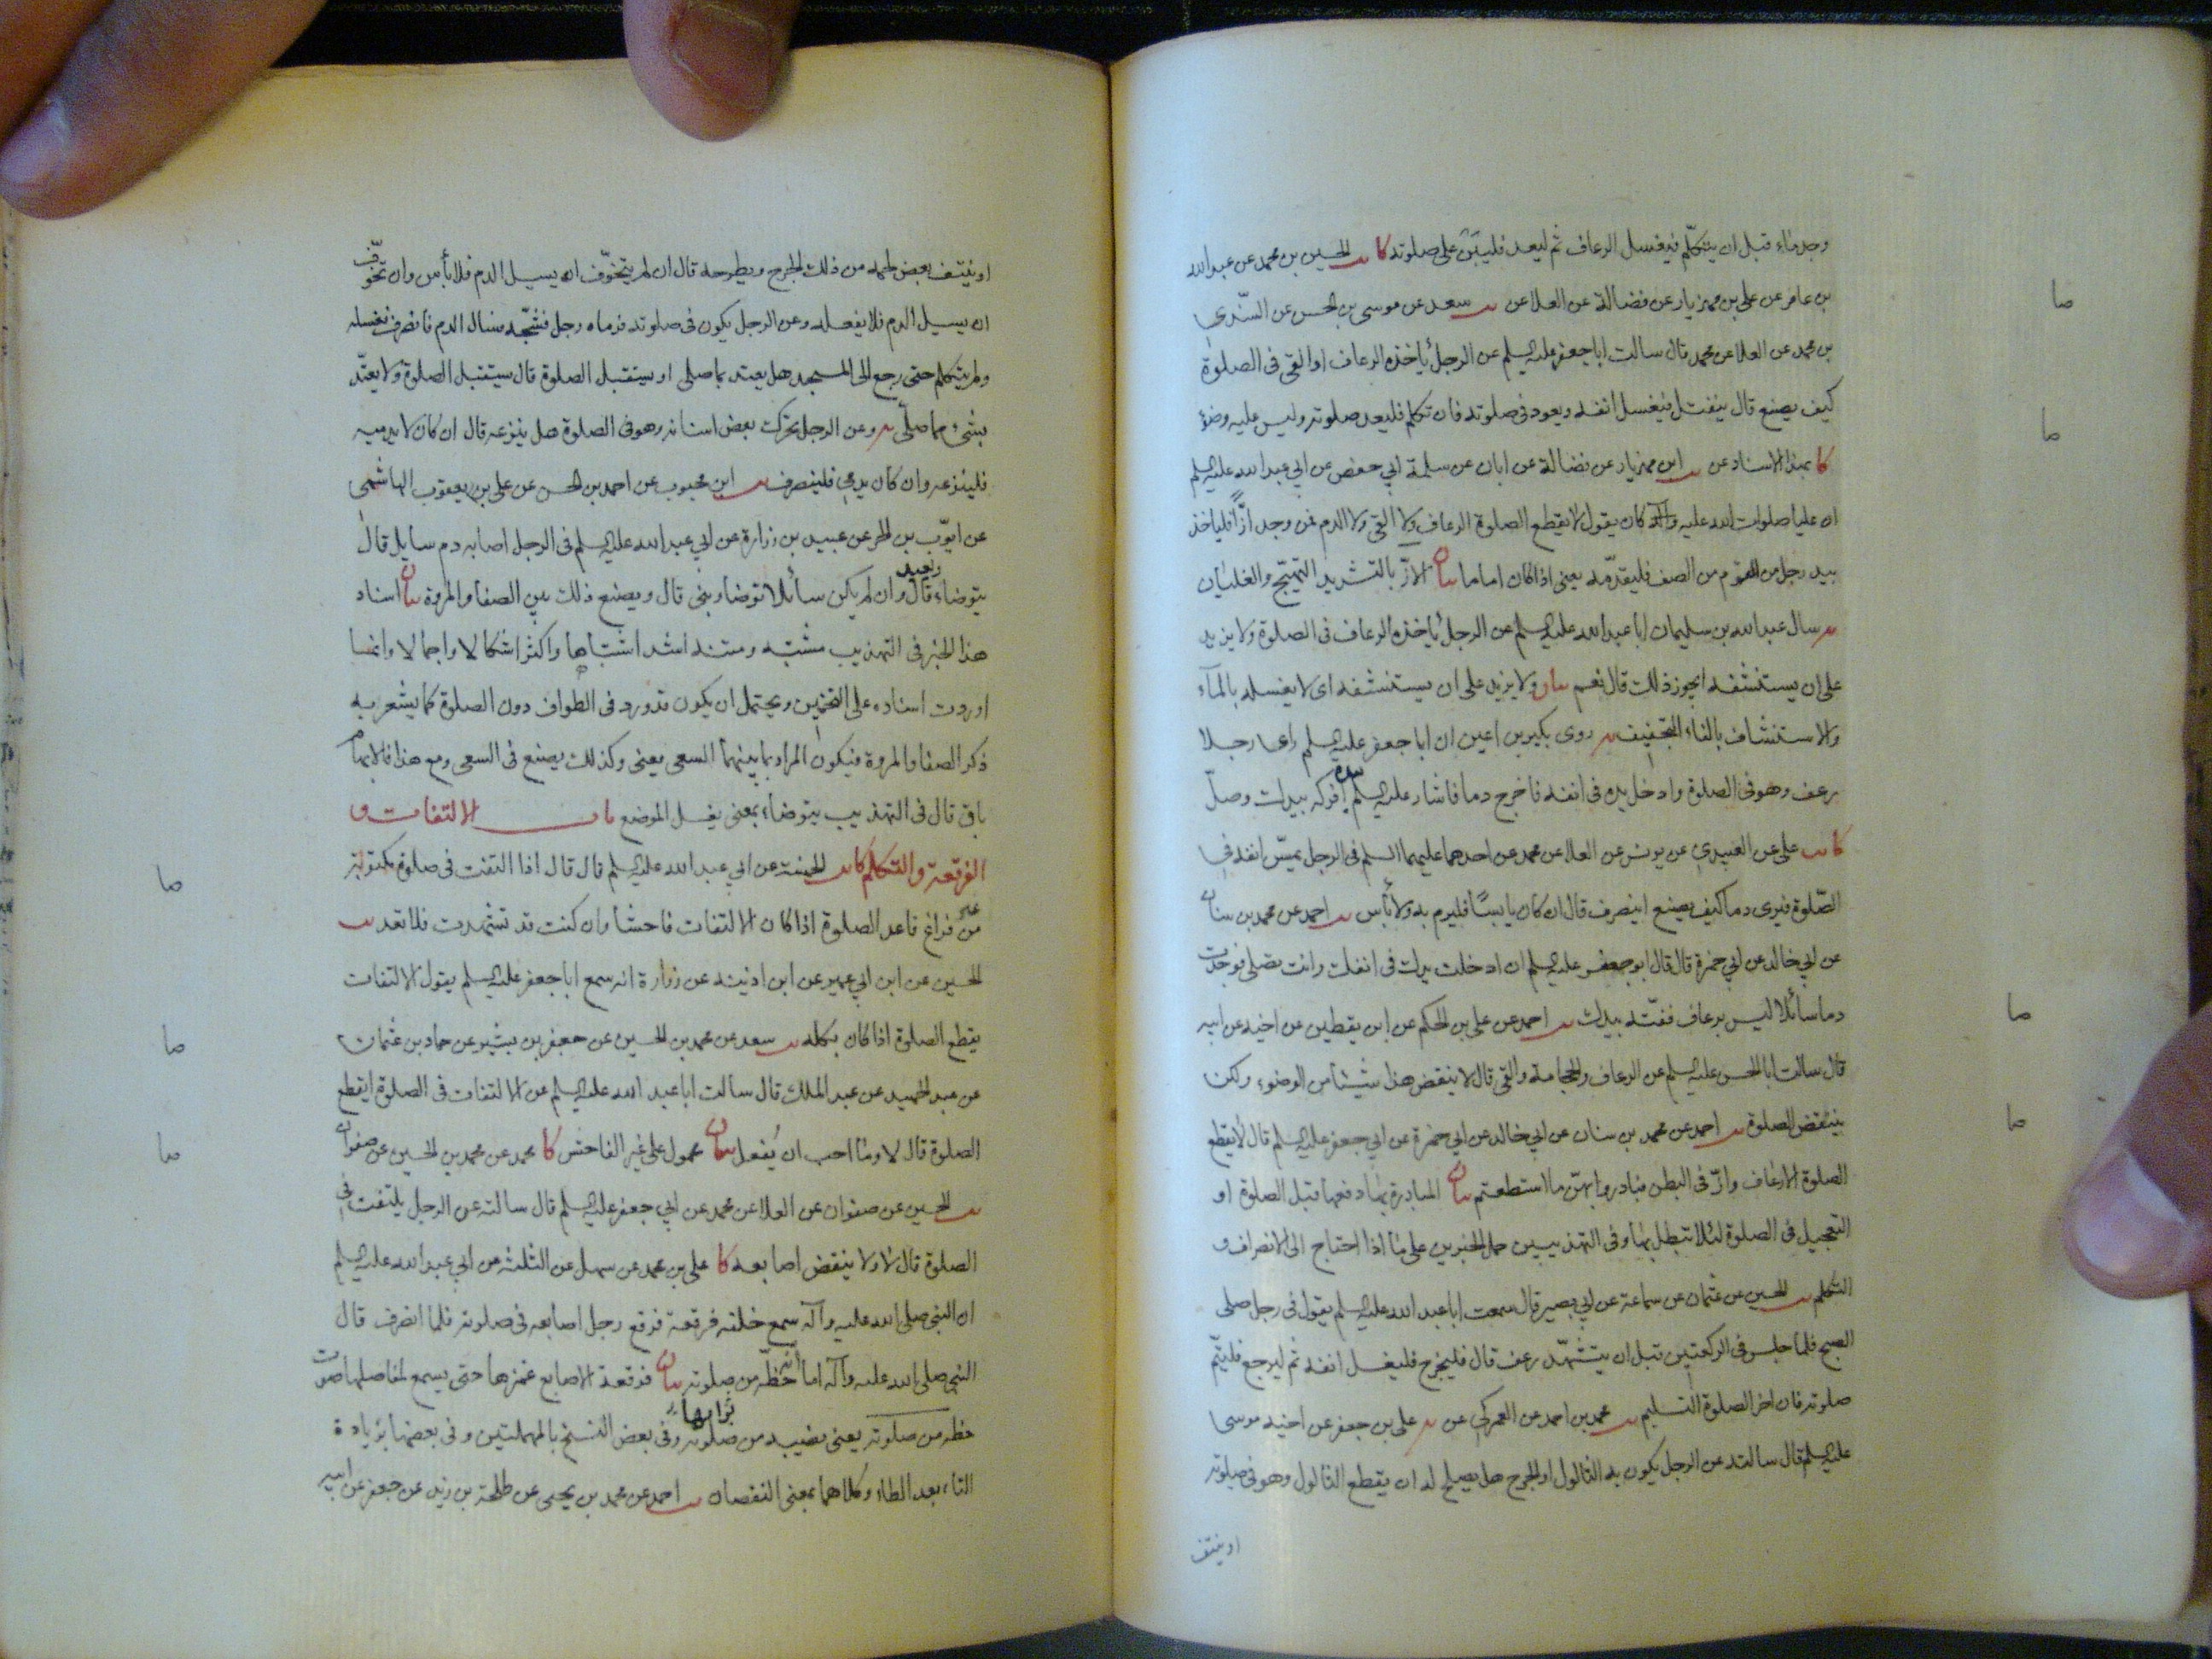 وجد ماء قبل ان يتكلم فيغسل الرعاف ثم ليعد فليبن على صلوته كا يب الحسين بن محمد عن عبد الله
بن عامر عن علي بن مهزيار عن فضالة عن العلا عن يب سعد عن موسى بن الحسن عن السندي
بن محمد عن العلا عن محمد قال سالت ابا جعفر عليه السلم عن الرجل يأخذه الرعاف او القي في الصلوة
كيف يصنع قال ينفتل فيغسل انفه ويعود في صلوته فان تكلم فليعد صلوته وليس عليه وضوء
كا بهذا الاسناد عن يب ابن مهزيار عن فضالة عن ابان عن سلمة ابي حفص عن ابي عبد الله عليه السلم
ان عليا صلوات الله عليه وآله كان يقول لا يقطع الصلوة الرعاف ولا القي ولا الدم فمن وجد ازّا فلياخذ
بيد رجل من القوم من الصف فليقدمه يعني اذا كان اماما بيان الازّ بالتشديد التهيّج والغليان
يه سال عبد الله بن سليمان ابا عبد الله عليه السلم عن الرجل يأخذه الرعاف في الصلوة ولا يزيد
على ان يستنشفه ايجوز ذلك قال نعم بيان ولا يزيد على ان يستنشفه اى لا يغسله بالمآء
والاستنشاف بالفاء التجفيف يه روى بكير بن اعين ان ابا جعفر عليه السلم راى رجلا
رعف وهو في الصلوة وادخل يده في انفه فاخرج دما فاشار عليه السلم بيده افركه بيدك وصلّ
كا يب علي عن العبيدي عن يونس عن العلا عن محمد عن احدهما عليهما السلم في الرجل يمسّ انفه في
الصّلوة فيرى دما كيف يصنع اينصرف قال ان كان يابسًا فليرم به ولا بأس يب احمد عن محمد بن سنان
عن ابي خالد عن ابي حمزة قال قال ابو جعفر عليه السلم ان ادخلت يدك في انفك وانت تصلي فوجدت
دما سائلا ليس برعاف ففتّه بيدك يب احمد عن علي بن الحكم عن ابن يقطين عن اخيه عن ابيه
قال سالت ابا الحسن عليه السلم عن الرعاف والحجامة والقي قال لا ينقض هذا شيئا من الوضوء ولكن
ينتقض الصلوة يب احمد عن محمد بن سنان عن ابي خالد عن ابي حمزة عن ابي جعفر عليه السلم قال لا يقطع
الصلوة الا رعاف وازّ في البطن فبادروا بهنّ ما استطعتم بيان المبادرة بها دفعها قبل الصلوة او
التعجيل في الصلوة لئلا تبطل بها وفي التهذيبين حمل الخبرين على ما اذا احتاج الى الانصراف و
التكلم يب الحسين عن عثمان عن سماعة عن ابي بصير قال سمعت ابا عبد الله عليه السلم يقول في رجل صلى
الصبح فلما جلس في الركعتين قبل ان يتشهّد رعف قال فليخرج فليغسل انفه ثم ليرجع فليتمّ
صلوته فان اخر الصلوة التسليم يب محمد بن احمد عن العمركي عن يه علي بن جعفر عن اخيه موسى
عليه السلم قال سالته عن الرجل يكون به الثالول او الجرح هل يصلح له ان يقطع الثالول وهو في صلوته
او ينتف
او ينتف بعض لحمه من ذلك الجرح ويطرحه قال ان لم يتخوّف ان يسيل الدم فلا بأس وان تخوّف
ان يسيل الدم فلا يفعله وعن الرجل يكون في صلوته فرماه رجل فشجّه فسال الدم فانصرف فغسله
ولم يتكلم حتى رجع الى المسجد هل يعتد بما صلى او يستقبل الصلوة قال يستقبل الصلوة ولا يعتد
بشيء مما صلّى يه وعن الرجل تحركت بعض اسنانه وهو في الصلوة هل ينزعه قال ان كان لا يدميه
فلينزعه وان كان يدمي فلينصرف يب ابن محبوب عن احمد بن الحسن عن علي بن يعقوب الهاشمي
عن ايّوب بن الحر عن عبيد بن زرارة عن ابي عبد الله عليه السلم في الرجل اصابه دم سايل قال
يتوضاء ويعيد قال وان لم يكن سائلا توضا وبنى قال ويصنع ذلك بين الصفا والمروة بيان اسناد
هذا الخبر في التهذيب مشتبه ومتنه اشد اشتباها واكثر اشكالا واجمالا وانما
اوردت اسناده على التخمين ويحتمل ان يكون قد ورد في الطواف دون الصلوة كما يشعر به
ذكر الصفا والمروة فيكون المراد بما بينهما السعى يعنى وكذلك يصنع في السعى ومع هذا فالابهام
باق قال في التهذيب يتوضاء بمعنى يغسل الموضع باب الالتفات و
الفرقعة والتكلم كا يب الخمسة عن ابي عبد الله عليه السلم قال قال اذا التفت في صلوة مكتوبة
من غير فراغ فاعد الصلوة اذا كان الالتفات فاحشا وان كنت قد تشهدت فلا تعد يب
الحسين عن ابن ابي عمير عن ابن اذينة عن زرارة انه سمع ابا جعفر عليه السلم يقول الالتفات
يقطع الصلوة اذا كان بكله يب سعد عن محمد بن الحسين عن جعفر بن بشير عن حماد بن عثمان
عن عبد الحميد عن عبد الملك قال سالت ابا عبد الله عليه السلم عن الالتفات في الصلوة ايقطع
الصلوة قال لا وما احب ان يفعل بيان محمول على غير الفاحش كا محمد عن محمد بن الحسين عن صفوان
يب الحسين عن صفوان عن العلا عن محمد عن ابي جعفر عليه السلم قال سالته عن الرجل يلتفت في
الصلوة قال لا ولا ينقض اصابعه كا علي بن محمد عن سهل عن الثلثة عن ابي عبد الله عليه السلم
ان النبي صلى الله عليه وآله سمع خلفه فرقعة فرقع رجل اصابعه في صلوته فلما انصرف قال
النبي صلى الله عليه وآله اما انه حظّه من صلوته بيان فرقعة الاصابع غمزها حتى يسمع لمفاصلها صوت
حظه من صلوته يعنى نصيبه من ثوابها صلوته وفي بعض النسخ بالمهملتين وفي بعضها بزيادة
التاء بعد الطاء وكلاهما بمعنى النقصان يب احمد عن محمد بن يحيى عن طلحة بن زيد عن جعفر عن ابيه